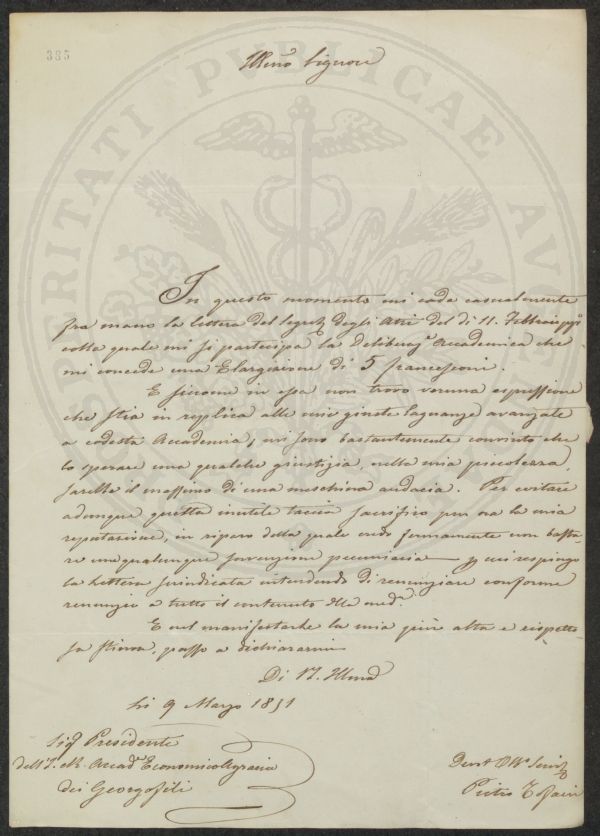 385
Illmo Signore
PROSPERITATI PUBLICAE AUGENDAE
In questo momento mi cade casualmente
fra mano la lettera del Segret. degli Atti del dì 11. Febbraio pp.
colla quale mi si partecipa la deliberaz. Accademica che
mi concede una Elargizione di 5 francesconi.
E siccome in essa non trovo veruna espressione
che stia in replica alle mie giuste lagnanze avanzate
a codesta Accademia, mi sono bastantemente convinto che
lo sperare una qualche giustizia, nella mia piccolezza,
sarebbe il massimo di una meschina audacia. Per evitare
adunque questa inutile taccia sacrifico per ora la mia
reputazione, in riparo della quale credo fermamente non basta-
re una qualunque sovvenzione pecuniaria e qui respingo
la Lettera surindicata intendendo di renunziare conforme
renunzio a tutto il contenuto della med.a
E nel manifestarle la mia più alta e rispetto-
sa stima, passo a dichiararmi
Di V. Illma
Li 9 Marzo 1851
Sig Presidente
dell'I. e R. Accad. Economico Agraria
dei Georgofili
Devot Obb Servit
Pietro